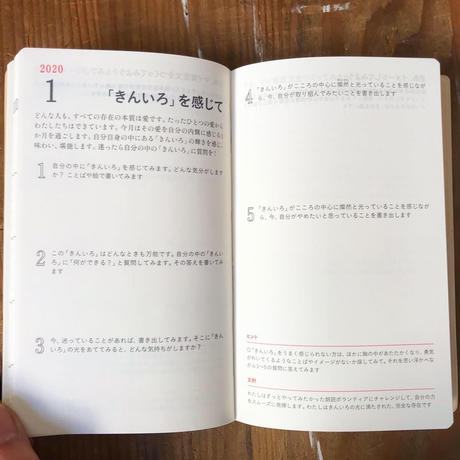 2020
1 「きんいろ」を感じて
どんな人も、すべての存在の本質は愛です。たったひとつの愛から
わたしたちはできています。今月はその愛を自分の内側に感じる1
か月を過ごします。自分自身の中にある「きんいろ」の輝きを感じ、
味わい、堪能します。迷ったら自分の中の「きんいろ」に質問を！
1 自分の中に「きんいろ」を感じてみます。どんな気分がします
か？ ことばや絵で書いてみます
2 この「きんいろ」はどんなときも万能です。自分の中の「きんい
ろ」に「何ができる？」と質問してみます。その答えを書いてみ
ます
3 今、迷っていることがあれば、書き出してみます。そこに「きん
いろ」の光をあててみると、どんな気持ちがしますか？
4 「きんいろ」がこころの中心に燦然と光っていることを感じなが
ら、今、自分が取り組んでみたいことを書き出します
5 「きんいろ」がこころの中心に燦然と光っていることを感じなが
ら、今、自分がやめたいと思っていることを書き出します
ヒント
○「きんいろ」をうまく感じられない方は、ほかに胸の中があたたかくなり、勇気
がわいてくるようなことばやイメージがないか探してみて。それを思い浮かべな
がら1〜5の質問に答えてみます
文例
わたしはずっとやってみたかった朗読ボランティアにチャレンジして、自分の力
をスムーズに発揮します。わたしはきんいろの光に満たされた、完全な存在です